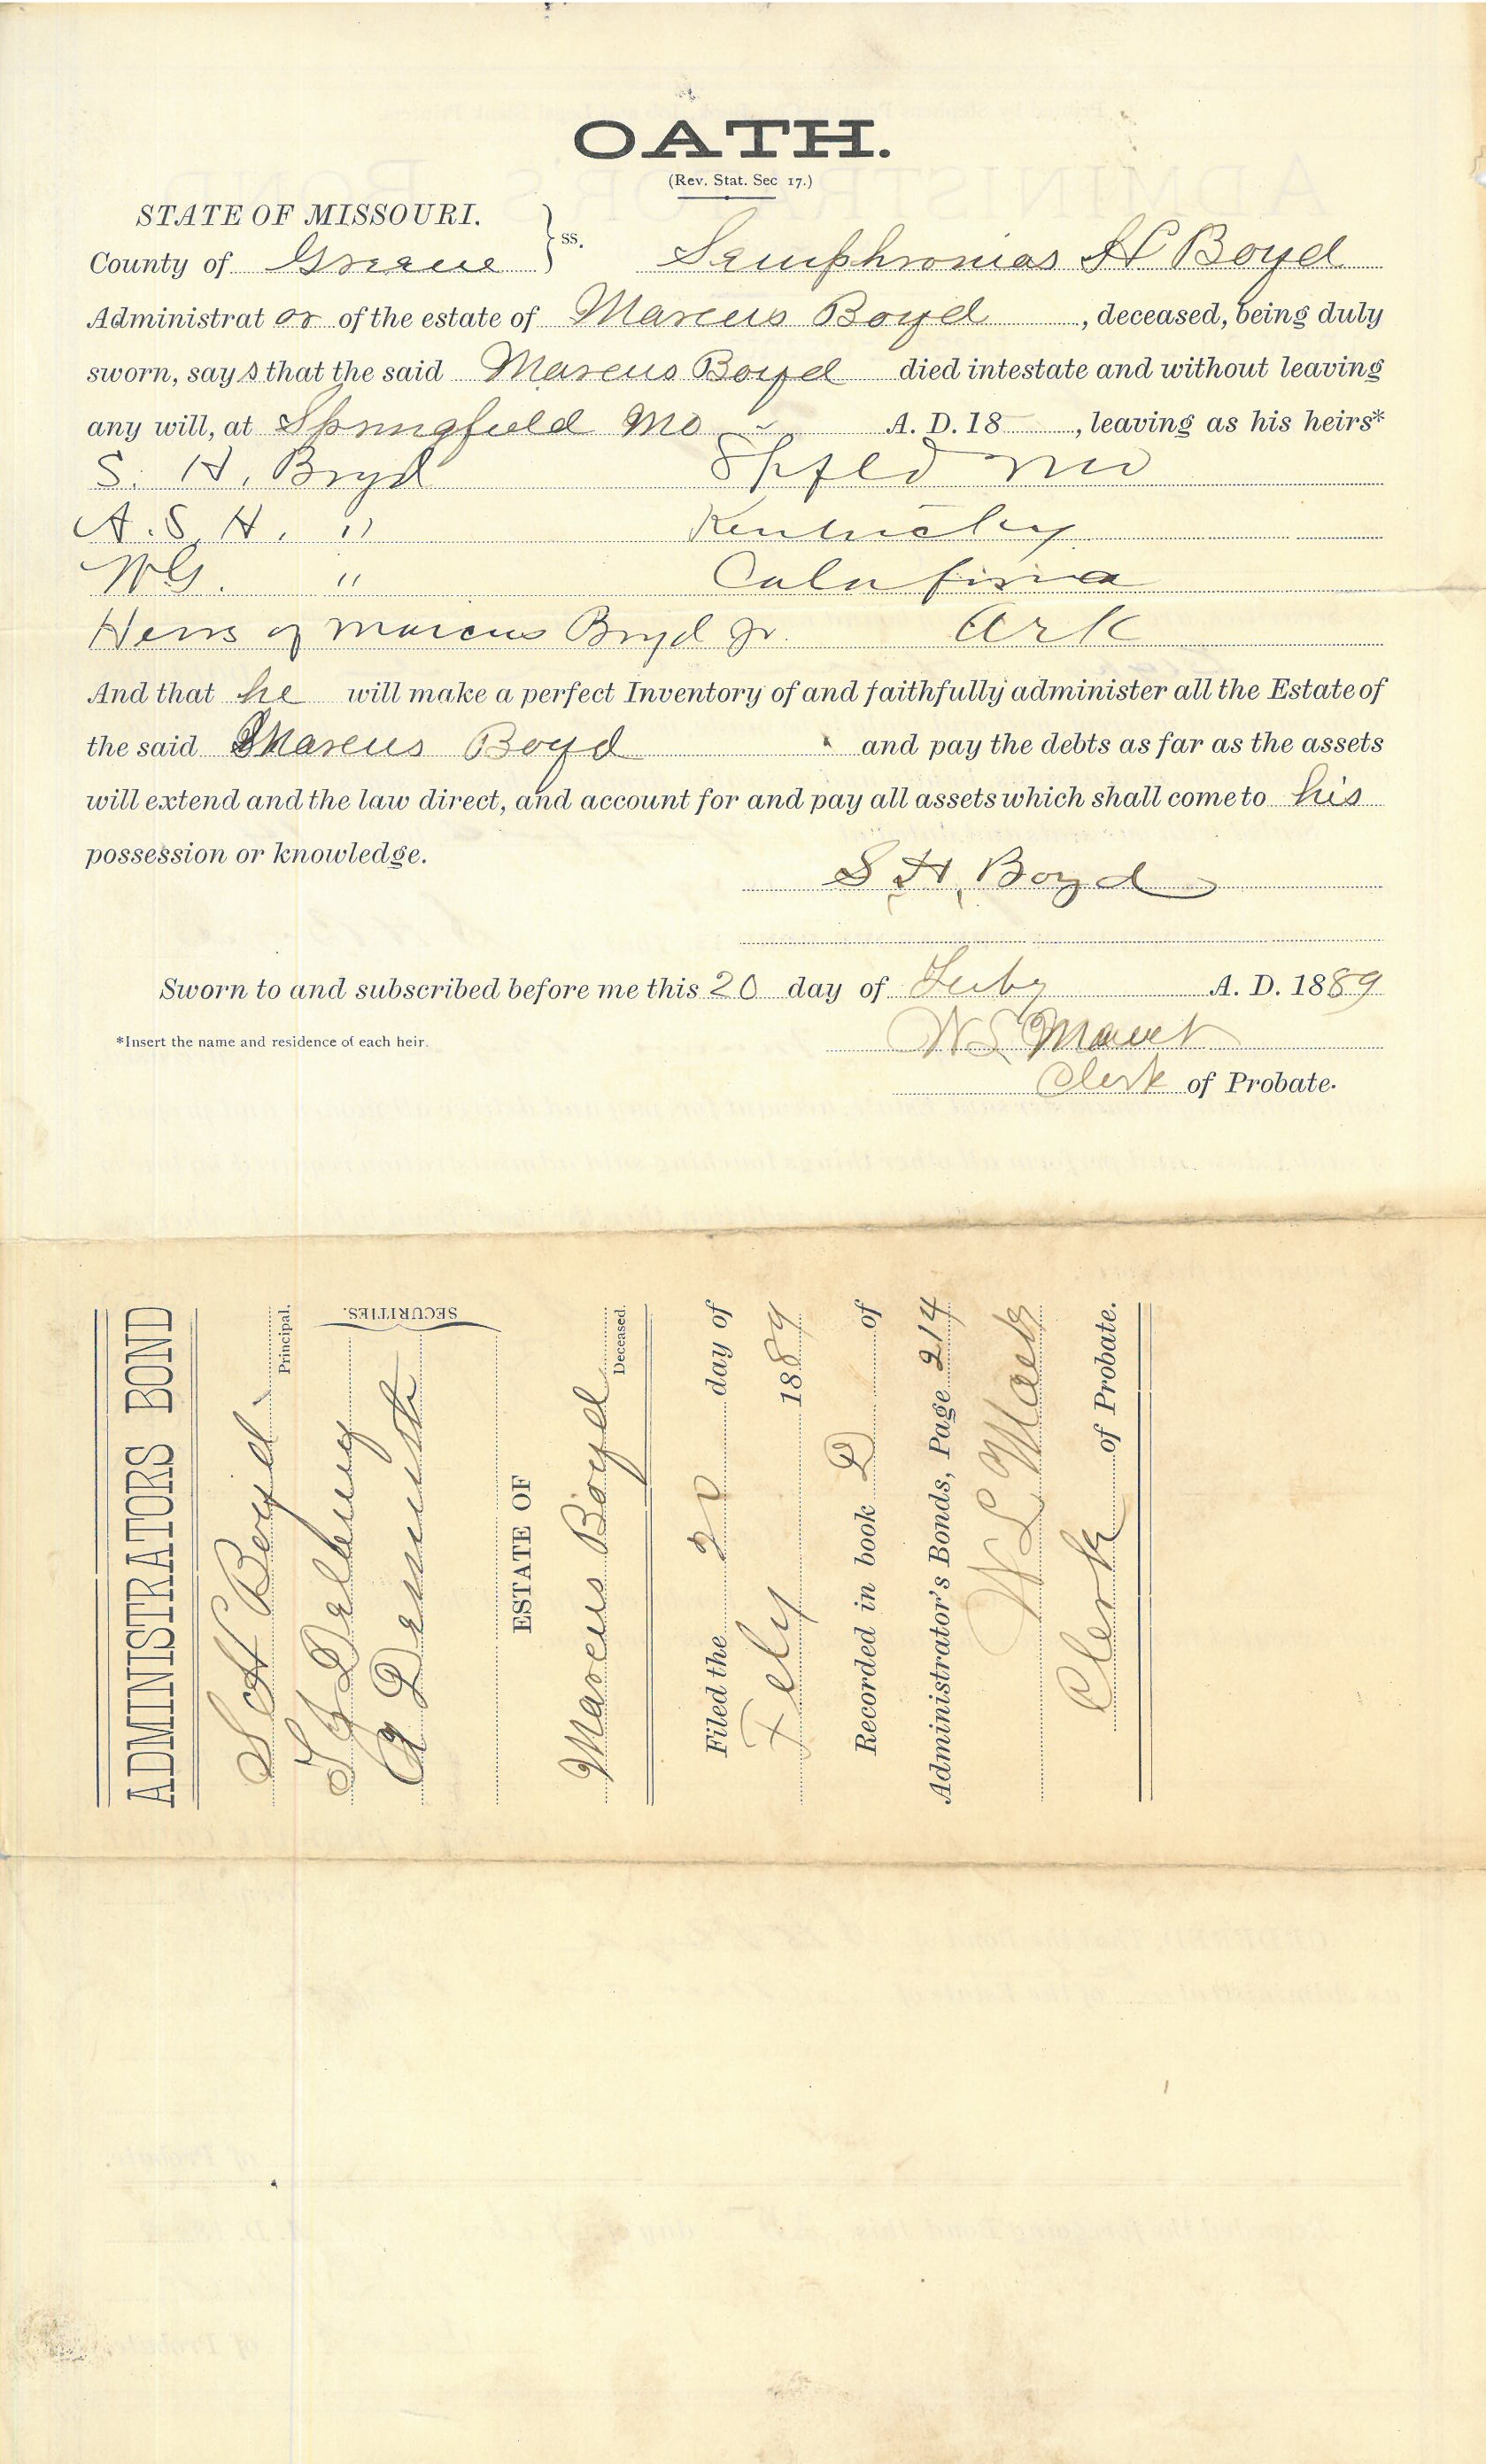 OATH.
(Rev. Stat. Sec 17.)
STATE OF MISSOURI.
County of Greene } ss. Semphronias H Boyd
Administrat or of the estate of Marcus Boyd , deceased, being duly
sworn, say s that the said Marcus Boyd died intestate and without leaving
any will, at Springfield Mo A. D. 18 , leaving as his heirs*
S. H. Boyd Spfld Mo
A. S. H. " Kentucky
W G. " California
Heirs of Marcus Boyd Jr. Ark
And that he will make a perfect Inventory of and faithfully administer all the Estate of
the said Marcus Boyd and pay the debts as far as the assets
will extend and the law direct, and account for and pay all assets which shall come to his
possession or knowledge.
S H. Boyd
Sworn to and subscribed before me this 20 day of A. D. 1889
*Insert the name and residence of each heir.
W S
Clerk of Probate.
ADMINISTRATORS BOND
S H Boyd
Principal.
SECURITIES.
ESTATE OF
Marcus Boyd
Deceased.
Filed the 20 day of
1889
Recorded in book D of
Administrator's Bonds, Page 214
Clerk of Probate.